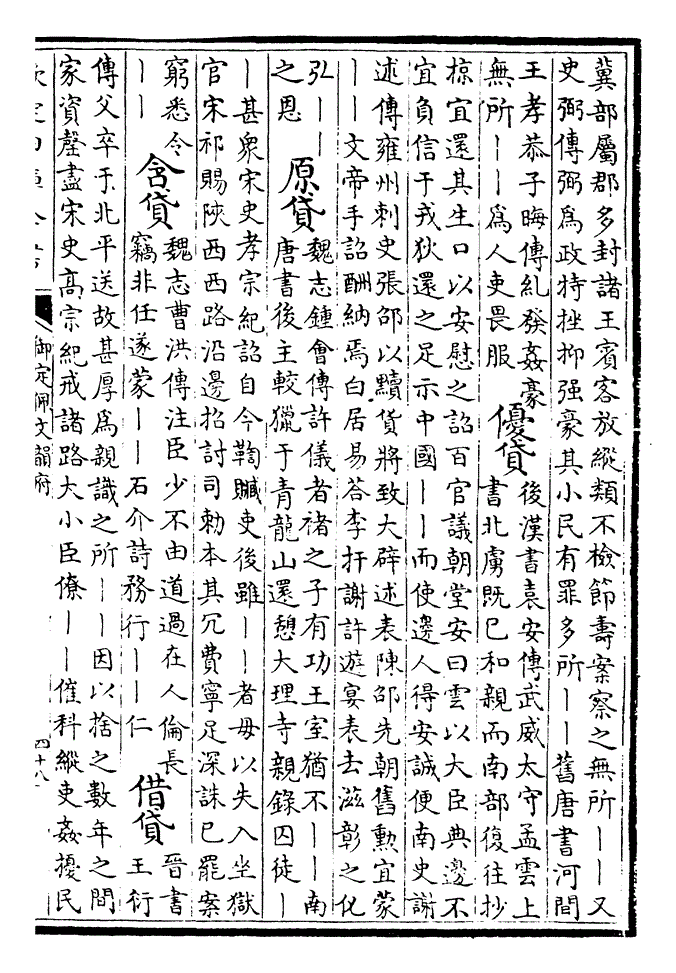 冀部屬郡多封諸王賓客放縱類不檢節壽案察之無所||又
史弼傳弼爲政特挫抑强豪其小民有罪多所||舊唐書河間
王孝恭子晦傳糺發姦豪
無所||爲人吏畏服
優貸
後漢書袁安傳武威太守孟雲上
書北虜既已和親而南部復往抄
掠宜還其生口以安慰之詔百官議朝堂安曰雲以大臣典邊不
宜負信于戎狄還之足示中國||而使邊人得安誠便南史謝
述傳雍州刺史張邵以黷貨將致大辟述表陳邵先朝舊勲宜蒙
||文帝手詔酬納焉白居易荅李扞謝許遊宴表去滋彰之化
弘||
之恩
原貸
魏志鍾會傳許儀者禇之子有功王室猶不||南
唐書後主較獵于青龍山還憩大理寺親錄囚徒|
|甚衆宋史孝宗紀詔自今鞫贓吏後雖||者毋以失入坐獄
官宋祁賜陜西西路沿邊招討司勅本其冗費寧足深誅已罷案
窮悉令
||
含貸
魏志曹洪傳注臣少不由道過在人倫長
竊非任遂蒙||石介詩務行||仁
借貸
晉書
王衍
傳父卒于北平送故甚厚爲親識之所||因以捨之數年之間
家資罄盡宋史高宗紀戒諸路大小臣僚||催科縱吏姦擾民
御定佩文韻府
四十八